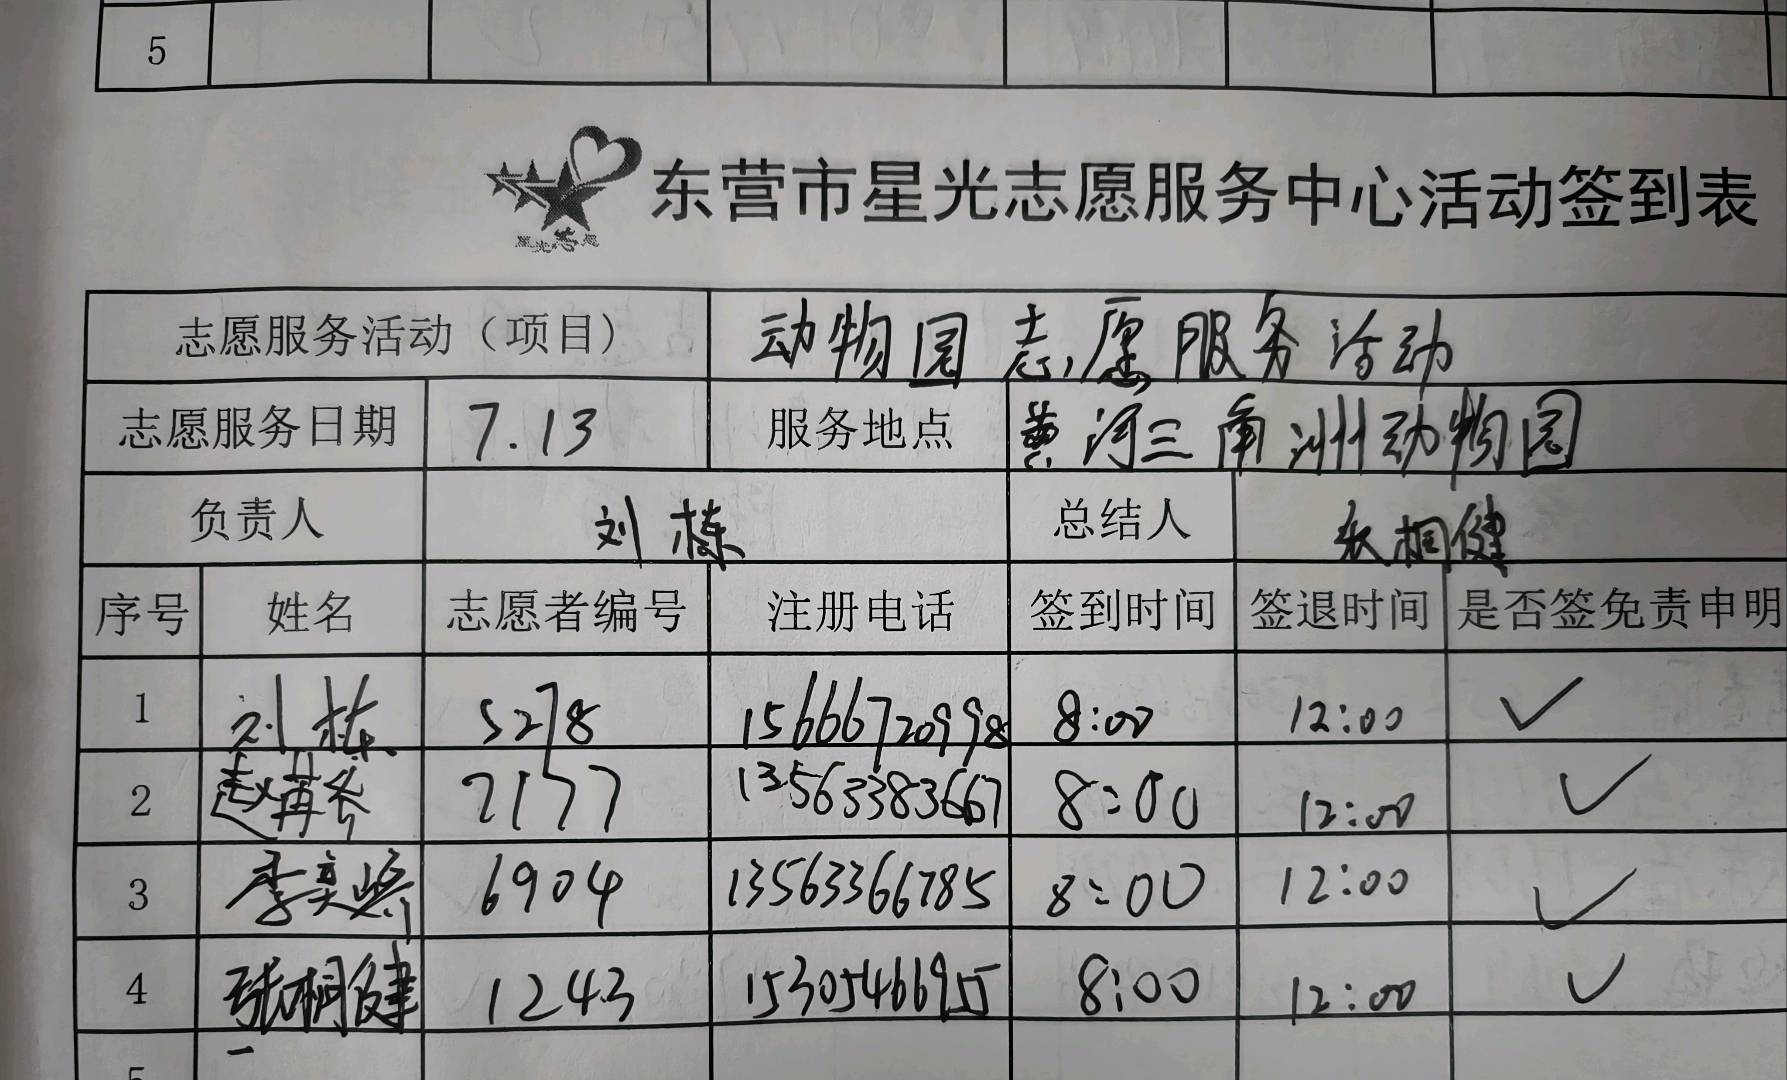 5
东营市星光志愿服务中心活动签到表
志愿服务活动（项目） 动物园志愿服务活动
志愿服务日期 7.13 服务地点 黄河三角洲动物园
负责人 刘栋 总结人 张桐健
序号 姓名 志愿者编号 注册电话 签到时间 签退时间 是否签免责申明
1 刘栋 5278 15666720998 8:00 12:00 ✓
2 赵苒岑 7177 13563383667 8:00 12:00 ✓
3 李奕 6904 13563366785 8:00 12:00 ✓
4 张桐健 1243 15305466955 8:00 12:00 ✓
5